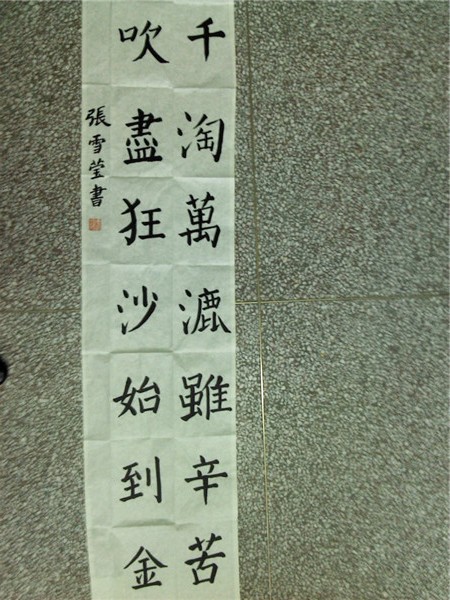 千淘萬漉雖辛苦
吹盡狂沙始到金
張雪莹書